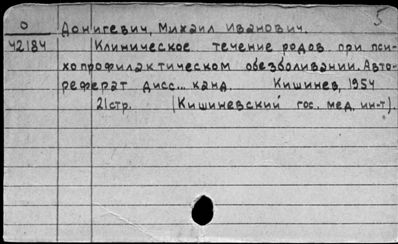 5
О Донигевич, Михаил Иванович.
42184 Клиническое течение родов при пси-
хопрофилактическом обезболивании. Авто-
реферат дисс... канд. Кишинев, 1954
21стр. (Кишиневский гос. мед. ин-т).